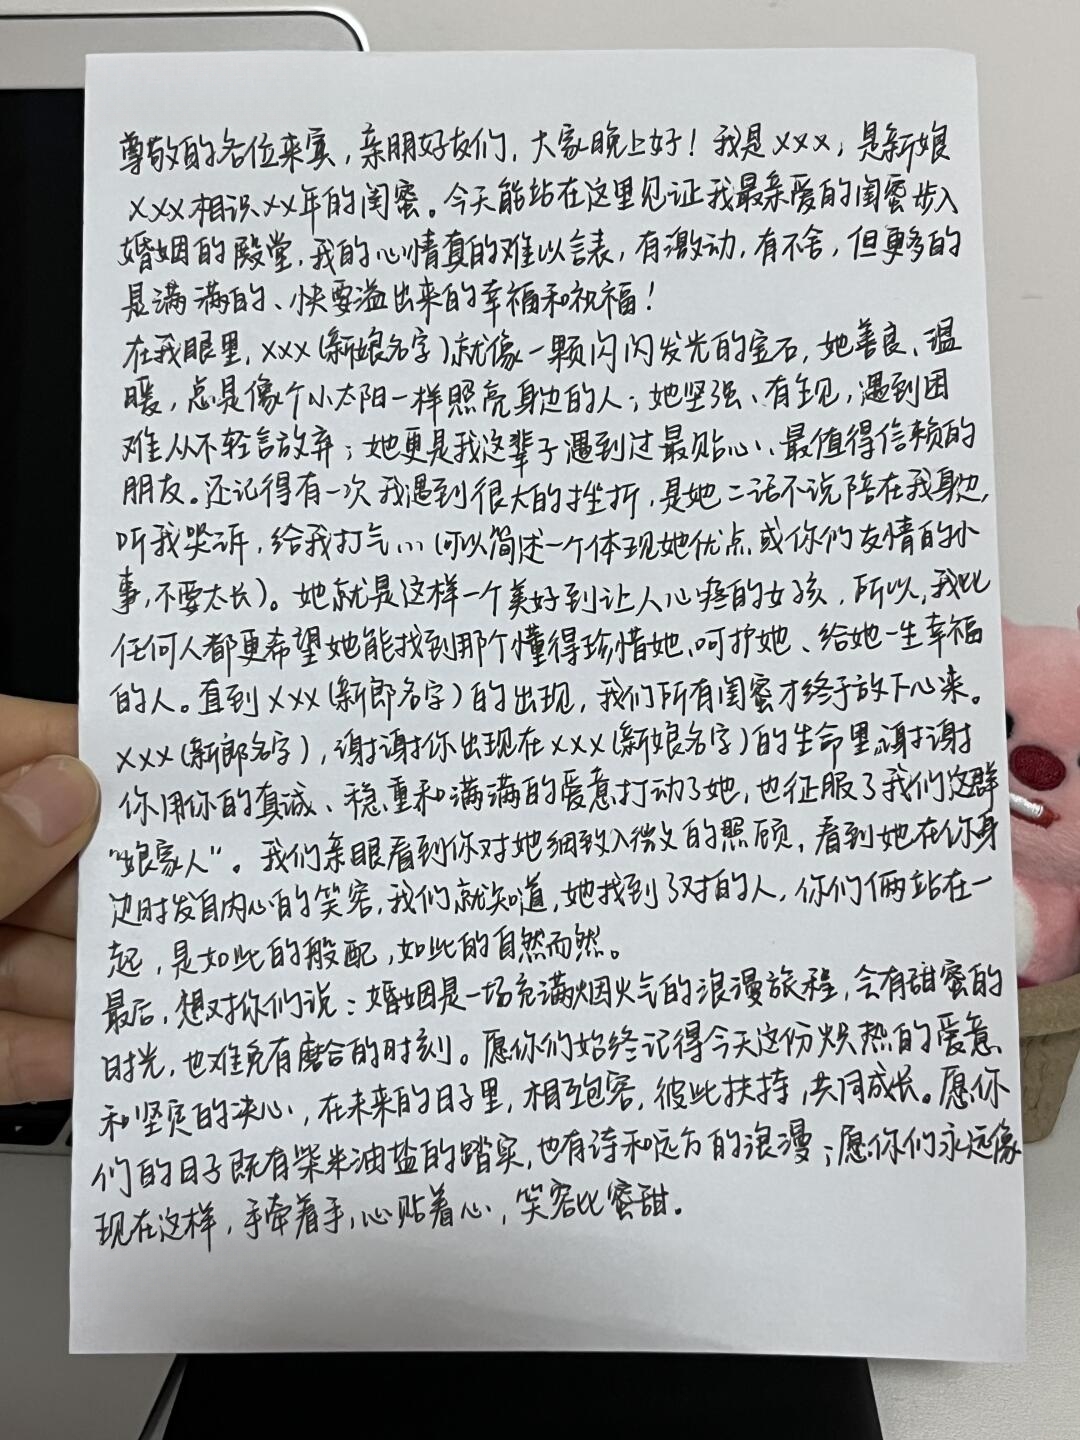 尊敬的各位来宾,亲朋好友们,大家晚上好!我是XXX,是新娘
XXX相识XX年的闺蜜。今天能站在这里见证我最亲爱的闺蜜步入
婚姻的殿堂,我的心情真的难以言表,有激动,有不舍,但更多的
是满满的、快要溢出来的幸福和祝福!
在我眼里,XXX(新娘名字)就像一颗闪闪发光的宝石,她善良、温
暖,总是像个小太阳一样照亮身边的人;她坚强、有主见,遇到困
难从不轻言放弃;她更是我这辈子遇到过最贴心、最值得信赖的
朋友。还记得有一次我遇到很大的挫折,是她二话不说陪在我身边,
听我哭诉,给我打气...(可以简述一个体现她优点或你们友情的小
事,不要太长)。她就是这样一个美好到让人心疼的女孩,所以,我比
任何人都更希望她能找到那个懂得珍惜她、呵护她、给她一生幸福
的人。直到XXX(新郎名字)的出现,我们所有闺蜜才终于放下心来。
XXX(新郎名字),谢谢你出现在XXX(新娘名字)的生命里,谢谢
你用你的真诚、稳重和满满的爱意打动了她,也征服了我们这群
“娘家人”。我们亲眼看到你对她细致入微的照顾,看到她在你身
边时发自内心的笑容,我们就知道,她找到了对的人,你们俩站在一
起,是如此的般配,如此的自然而然。
最后,想对你们说:婚姻是一场充满烟火气的浪漫旅程,会有甜蜜的
时光,也难免有磨合的时刻。愿你们始终记得今天这份炽热的爱意
和坚定的决心,在未来的日子里,相互包容,彼此扶持,共同成长。愿你
们的日子既有柴米油盐的踏实,也有诗和远方的浪漫;愿你们永远像
现在这样,手牵着手,心贴着心,笑容比蜜甜。